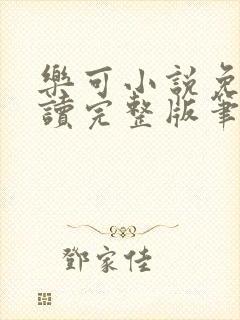 樂可小說免
讀完整版筆
鄧家佳